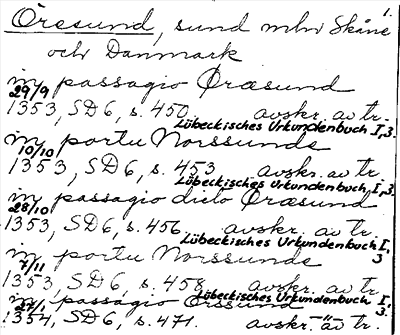 1.
Öresund, sund mln Skåne
och Danmark
in passagio Øræsund
29/9 1353, SD6, s. 450 avskr. av tr.
Lübeckisches Urkundenbuch I,3.
in portu Norssunde
10/10 1353, SD6, s. 453 avskr. av tr.
Lübeckisches Urkundenbuch, I,3.
in passagio dicto Øræsund
28/10 1353, SD6, s. 456 avskr. av tr.
Lübeckisches Urkundenbuch I, 3
in portu Norssunde
7/11 1353, SD6, s. 458 avskr. av tr.
Lübeckisches Urkundenbuch I, 3.
in passagio Orssund
1354, SD6, s. 471. avskr. av tr